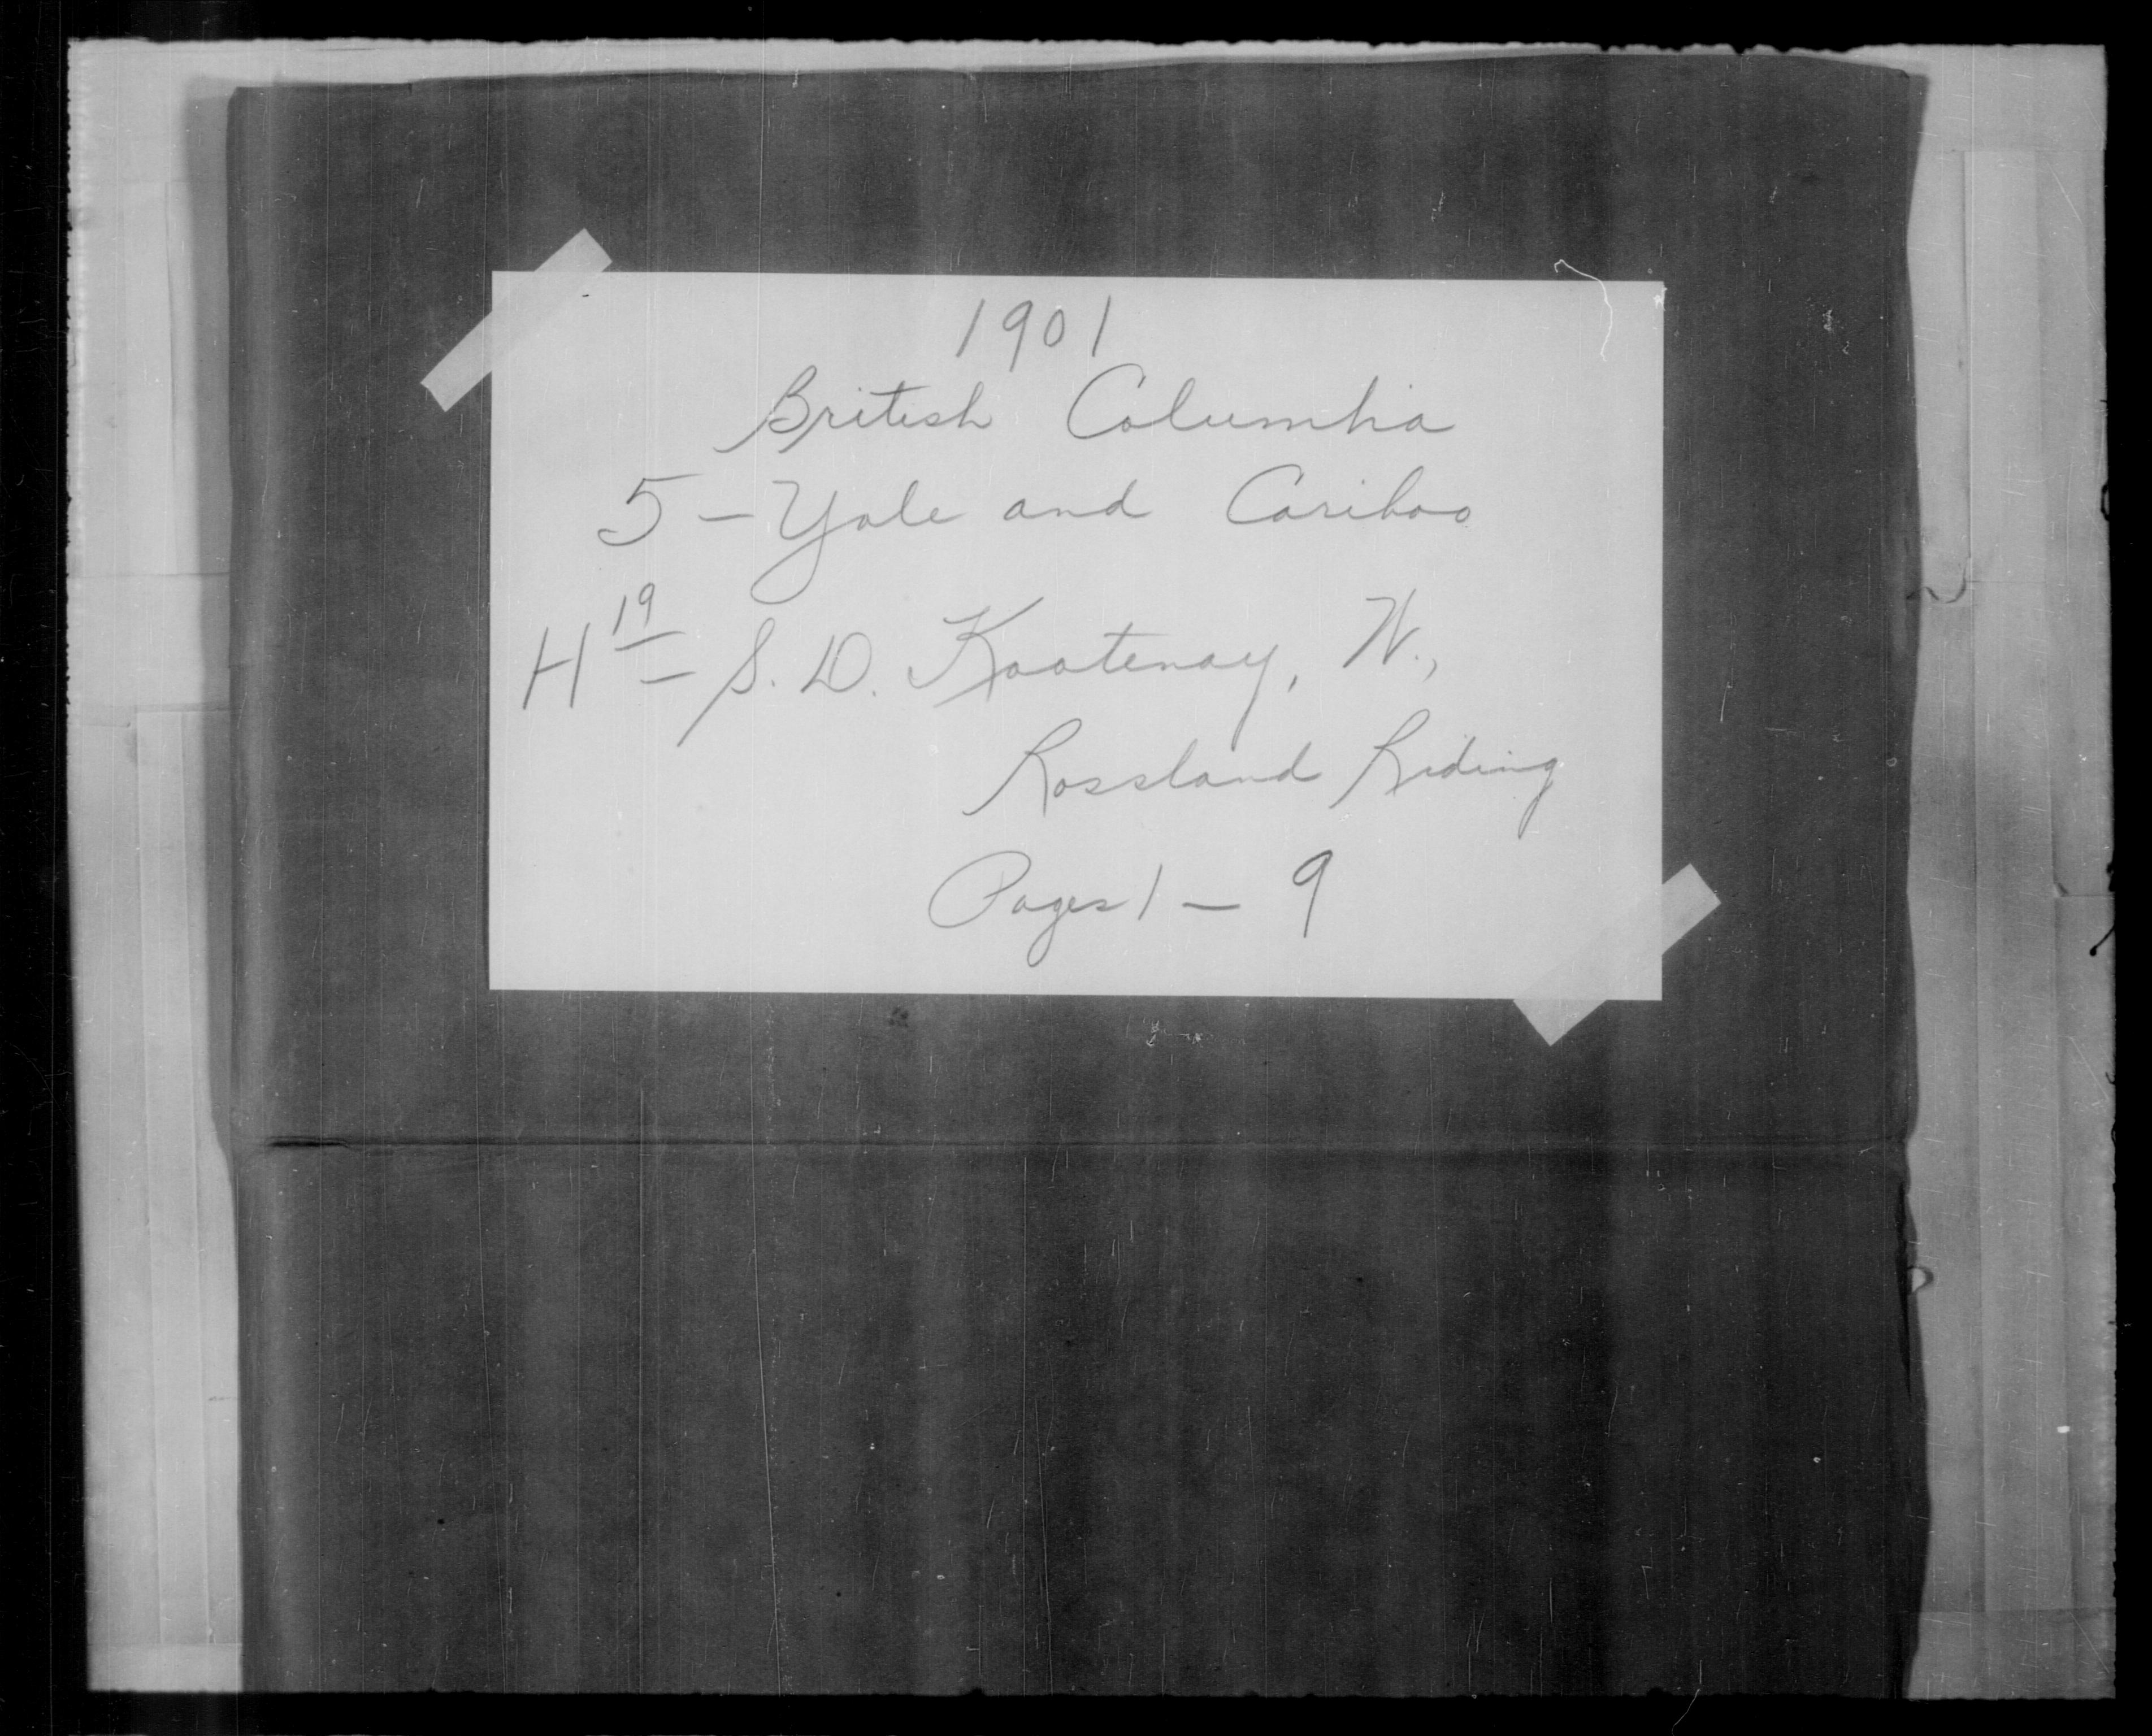 1901
British Columbia
5 - Yale and Cariboo
H 19 - S. D. Kootenay, W.,
Rossland Riding
Pages 1 - 9